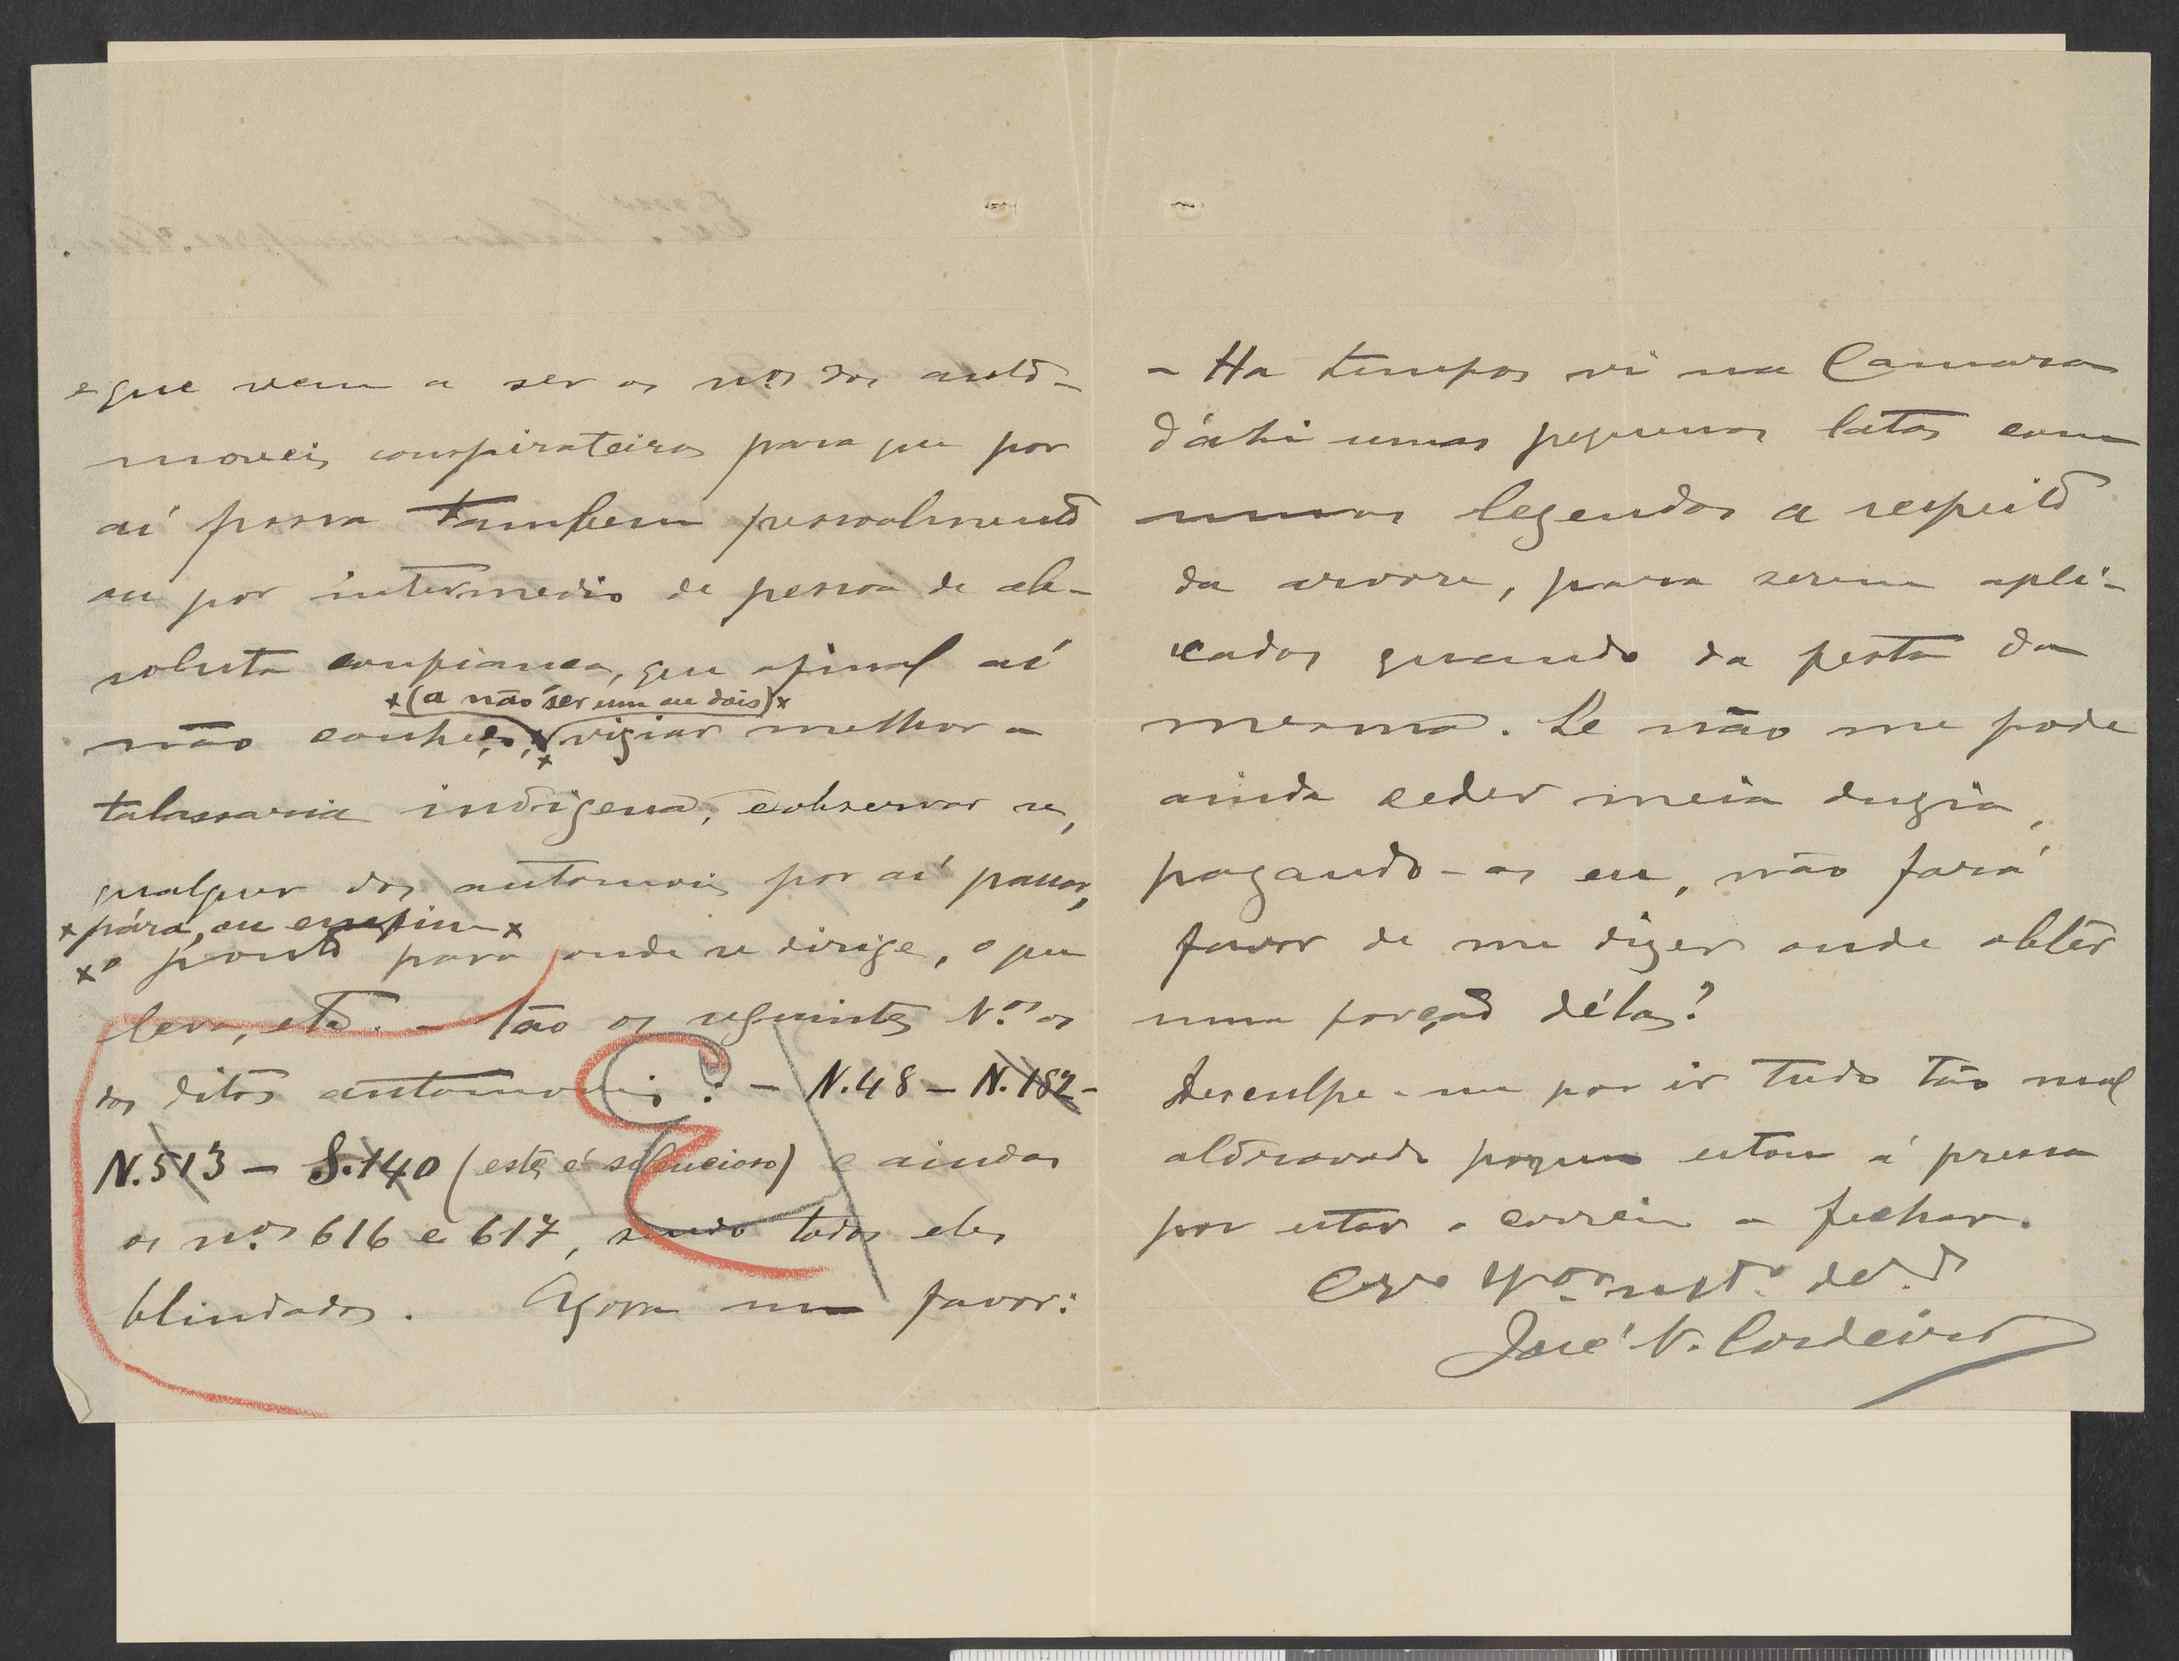 e que vem a ser os nos dos auto-
moveis conspirateiros para que por
aí possa tambem pessoalmente
ou por intermedio de pessoa de ab-
soluta confiança, que afinal aí
x (a não ser um ou dois) x
não conheço, x vigiar melhor a
talassaria indigena, e observar se,
qualquer dos automoveis por aí passar,
x pára, ou enfim x
x o ponto para onde se dirige, o que
leva, etc. - São os seguintes N.os os
dos ditos automoveis: - N.48 - N.182 -
N.513 - S.140 (este é silencioso) e ainda
os n.os 616 e 617, sendo todos eles
blindados. Agora um favor:
- Ha tempos vi na Camara
d'ahi umas pequenas latas com
umas legendas a respeito
da arvore, para serem apli-
cadas quando da festa da
mesma. Se não me pode
ainda ceder meia duzia,
pagando-as eu, não fará
favor de me dizer onde obter
uma porção délas?
Desculpe-me por ir tudo tão mal
aldravado porque estou á pressa
por estar o correio a fechar.
José N. Cordeiro